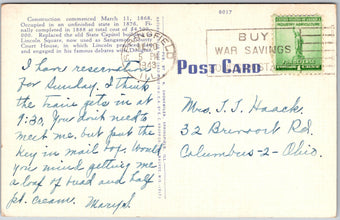 Construction commenced March 11, 1868.
Occupied in an unfinished state in 1876. Fi-
nally completed in 1888 at total cost of $4,500,-
000. Replaced the old State Capitol
Lincoln Square, now used as Sangamon County
Court House, in which Lincoln
and engaged in his famous debates
9017
SPRINGFIELD
BUY
WAR SAVINGS
POST CARD
I have reservation
for Sunday. I think
the train gets in at
9:30. You don't need to
meet me. but put the
key in mail box. Would
you mind getting me
a loaf of bread and half
pt. cream. Maryph
Mrs. T. J. Haack.
32 Brevoort Rd.
Columbus-2-Ohio.